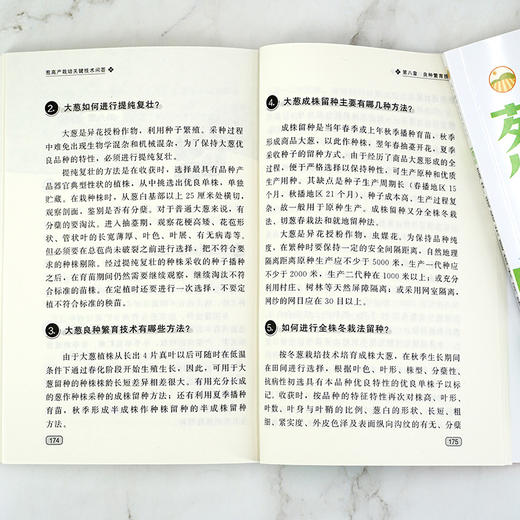 葱高产栽培关键技术问答
2. 大葱如何进行提纯复壮?
大葱是异花授粉作物，利用种子繁殖。采种过程
中难免出现生物学混杂和机械混杂，为了保持大葱优
良品种的特性，必须进行提纯复壮。
提纯复壮的方法是在收获时，选择最具有品种产
品器官典型性状的植株，从中挑选出优良单株，单独
贮藏。在栽种株时，从葱白基部以上 25 厘米处横切，
观察剖面，鉴别是否有分蘖。对于普通大葱来说，有分
蘖的要淘汰。进入抽薹期，观察花梗高矮、花苞形
状、管状叶的长宽薄厚、叶色、叶展、有无病毒等。
但必须要在总苞尚未破裂之前进行选择，把不符合要
求的种株剔除。经过提纯选择收获的种子于秋播播种
之后，在育苗期间仍然需要继续观察，继续淘汰不符
合标准的秧苗。在定植时还要进行一次选择，不要定
植不符合标准的植苗。
3. 大葱良种繁育技术有哪些方法?
由于大葱植株从长出 4 片真叶以后可随时在低温
条件下通过春化阶段开始生殖生长，因此，可用于大
葱留种的种株株龄长短差异相差很大。有用充分长成
的葱作种株采种的成株留种方法；还有利用夏季播种
育苗，秋季形成半成株作种株留种的半成株留种
方法。
174
第八章 良种繁育技
4. 大葱成株留种主要有哪几种方法?
成株留种是当年春季或上年秋季播种育苗，秋季
形成商品大葱，以此作种株，翌年春抽薹开花，夏季
采收种子的留种方式。由于经历了商品大葱形成的全
过程，便于严格选择以保持种性，可生产原种和优质
生产用种。其缺点是种子生产周期长（春播地区 15
个月，秋播地区 21 个月），种子成本高，生产过程复
杂，故一般用于原种生产。成株留种又分全株冬栽
法、切葱春栽法和就地留种法。
大葱是异花授粉作物，虫媒花。为保持品种纯
度，在繁种时要保持一定的安全间隔距离，自然地理
隔离距离原种生产应不少于 5000 米，生产一代种应
不少于 2000 米，生产二代种在 1000 米以上；或充分
利用村庄、树林等天然屏障隔离；或采用网室隔离，
网纱的网目应在 30 目以上。
5. 如何进行全株冬栽法留种?
按冬葱栽培技术培育成株大葱，在秋季生长期间
在田间进行选种，根据叶色、叶形、株型、分蘖性、
抗病性初选具有本品种优良特性的优良单株子以标
记。收获时，按品种的特征特性再次对株高、叶形、
叶数、叶身与叶鞘的比例、葱白的形状、长短、粗
细、紧实度、外皮色泽及表面纵向沟纹的有无、分蘖
175